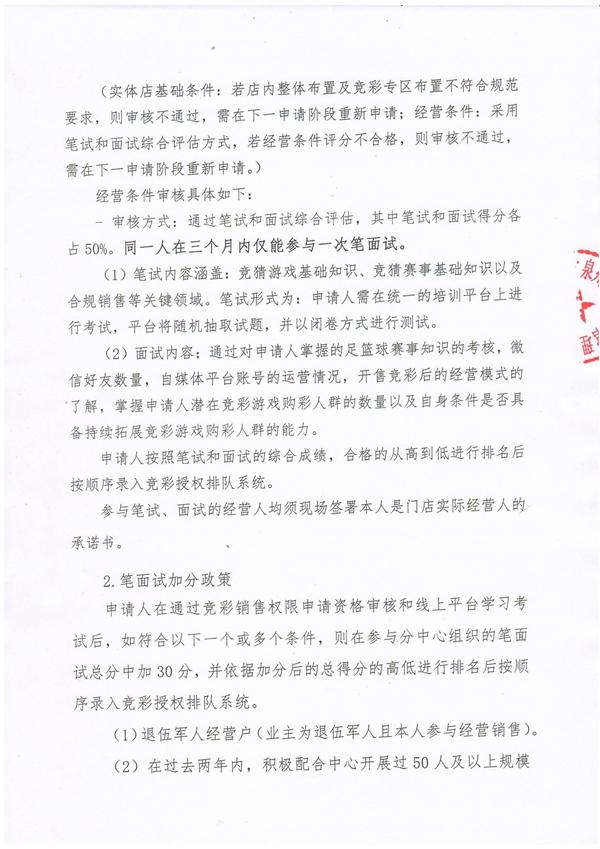 （实体店基础条件：若店内整体布置及竞彩专区布置不符合规范
要求，则审核不通过，需在下一申请阶段重新申请；经营条件：采用
笔试和面试综合评估方式，若经营条件评分不合格，则审核不通过，
需在下一申请阶段重新申请。）
经营条件审核具体如下：
- 审核方式：通过笔试和面试综合评估，其中笔试和面试得分各
占 50%。同一人在三个月内仅能参与一次笔面试。
（1）笔试内容涵盖：竞猜游戏基础知识、竞猜赛事基础知识以及
合规销售等关键领域。笔试形式为：申请人需在统一的培训平台上进
行考试，平台将随机抽取试题，并以闭卷方式进行测试。
（2）面试内容：通过对申请人掌握的足篮球赛事知识的考核，微
信好友数量，自媒体平台账号的运营情况，开售竞彩后的经营模式的
了解，掌握申请人潜在竞彩游戏购彩人群的数量以及自身条件是否具
备持续拓展竞彩游戏购彩人群的能力。
申请人按照笔试和面试的综合成绩，合格的从高到低进行排名后
按顺序录入竞彩授权排队系统。
参与笔试、面试的经营人均须现场签署本人是门店实际经营人的
承诺书。
2.笔面试加分政策
申请人在通过竞彩销售权限申请资格审核和线上平台学习考
试后，如符合以下一个或多个条件，则在参与分中心组织的笔面
试总分中加 30 分，并依据加分后的总得分的高低进行排名后按顺
序录入竞彩授权排队系统。
（1）退伍军人经营户（业主为退伍军人且本人参与经营销售）。
（2）在过去两年内，积极配合中心开展过 50 人及以上规模
泉
理